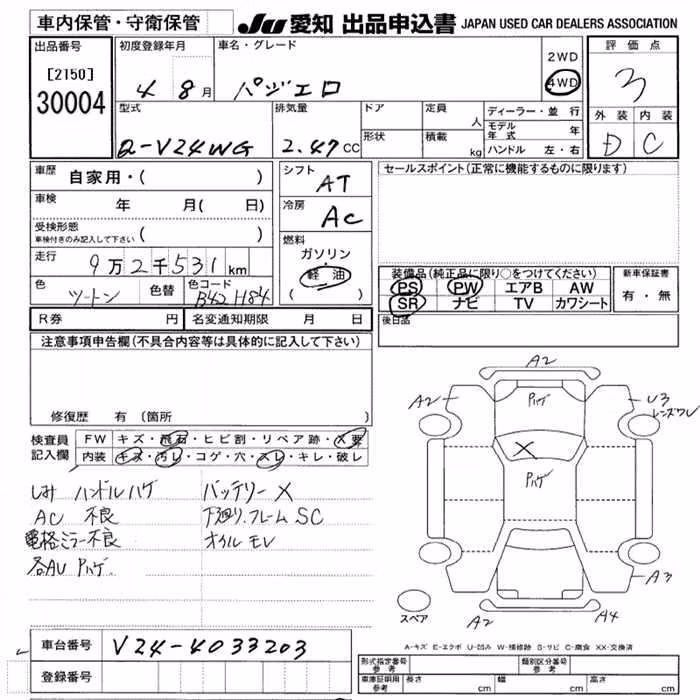 車内保管・守衛保管
JU 愛知 出品申込書 JAPAN USED CAR DEALERS ASSOCIATION
出品番号
[2150]
30004
初度登録年月
4 8月
車名・グレード
パジェロ
2WD
4WD
評価点
3
外装 内装
D C
型式
Q-V24WG
排気量
2.47cc
ドア
形状
定員
人
積載
kg
ディーラー・並行
モデル年式 年
ハンドル 左・右
車歴
自家用・( )
車検
年 月( 日)
受検形態
車検付きのみ記入して下さい ( )
走行
9万2千531km
色
ツートン
色替
色コード
B42 H84
シフト
AT
冷房
AC
燃料
ガソリン
軽油
( )
セールスポイント(正常に機能するものに限ります)
装備品(純正品に限り○をつけてください)
PS PW エアB AW
SR ナビ TV カワシート
新車保証書
有・無
後日品
R券 円 名変通知期限 月 日
注意事項申告欄(不具合内容等は具体的に記入して下さい)
修復歴 有(箇所
検査員記入欄
FW キズ・飛石・ヒビ割・リペア跡・X要
内装 キズ・汚レ・コゲ・穴・スレ・キレ・破レ
しみ ハンドルハゲ
AC 不良
電格ミラー不良
各AU Pハゲ
バッテリーX
下廻り、フレーム SC
オイルモレ
A2
A2
Pハゲ
U3
レンズワレ
X
Pハゲ
A3
A2
A4
スペア
A-キズ E-エクボ U-凹み W-補修跡 S-サビ C-腐食 XX-交換済
車台番号
V24-4033203
登録番号
形式指定番号
参考
類別区分番号
参考
車庫証明用
参考
長さ cm
幅 cm
高さ cm